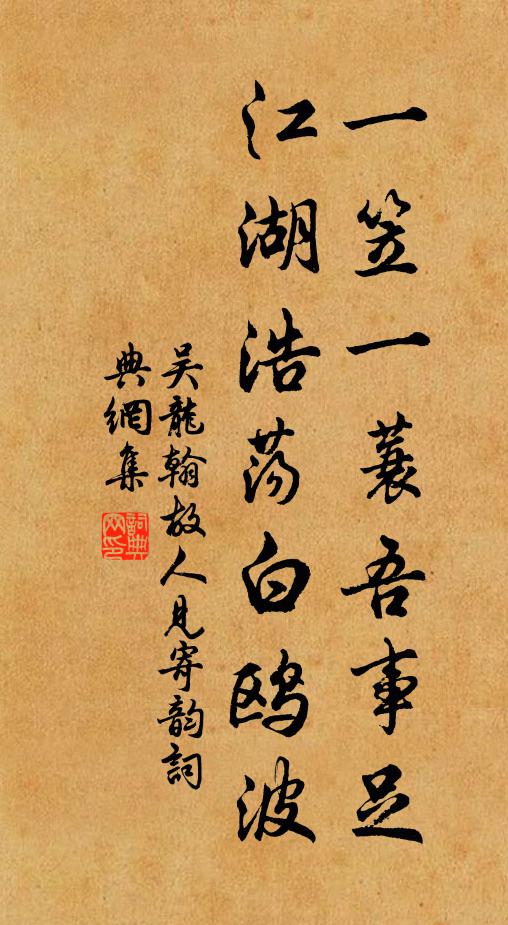 一笠一蓑吾事足
江湖浩荡白鸥波
吴龍翰故人見寄韵詞
典網集
詞典网印